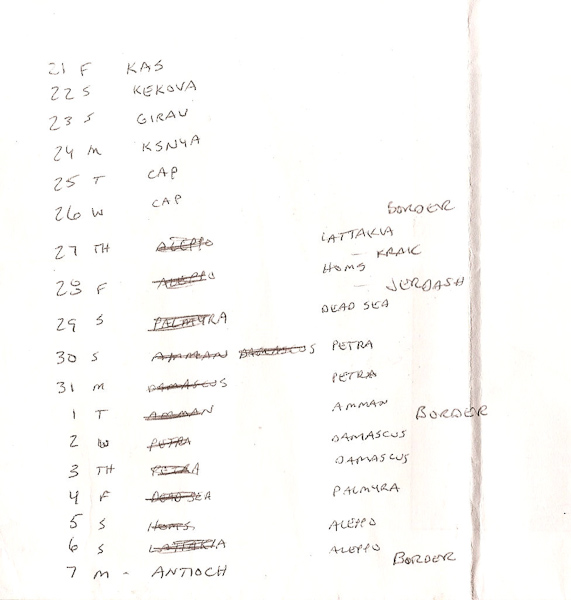 21 F KAS
22 S KEKOVA
23 S GIRAU
24 M KSNYA
25 T CAP
26 W CAP BORDER
27 TH ALEPPO LATTAKIA
- KRAK
28 F ALEPPO HOMS
- JERDASH
29 S PALMYRA DEAD SEA
30 S AMMAN DAMASCUS PETRA
31 M DAMASCUS PETRA
1 T AMMAN AMMAN BORDER
2 W PETRA DAMASCUS
3 TH PETRA DAMASCUS
4 F DEAD SEA PALMYRA
5 S HOMS ALEPPO
6 S LATTAKIA ALEPPO BORDER
7 M - ANTIOCH